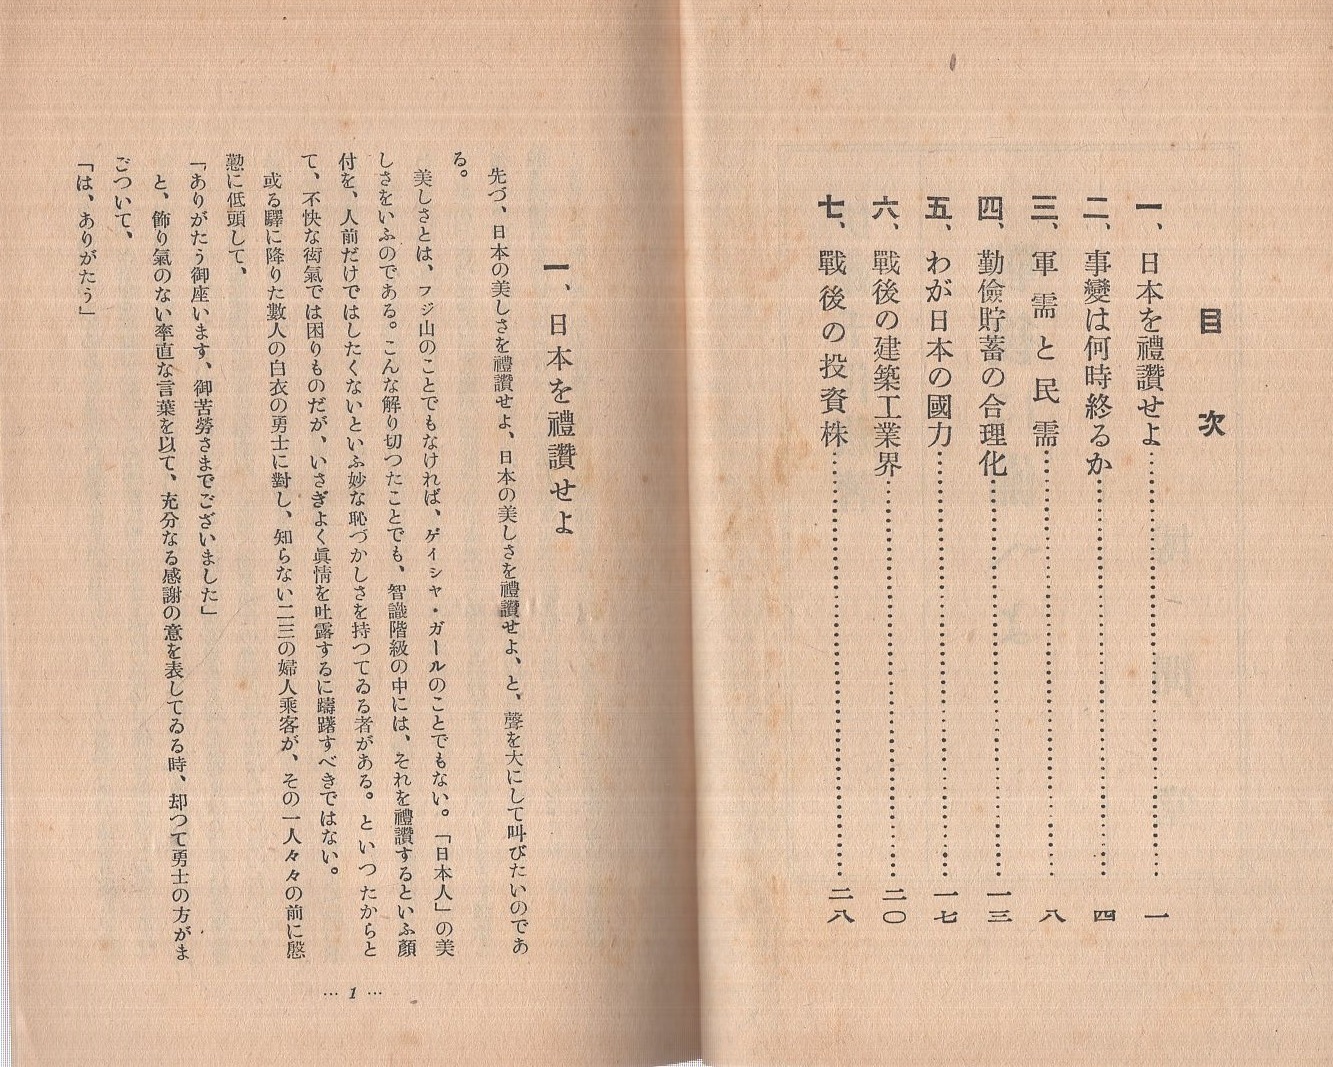 目次
一、日本を禮讚せよ……一
二、事變は何時終るか……四
三、軍需と民需……八
四、勤儉貯蓄の合理化……一三
五、わが日本の國力……一七
六、戰後の建築工業界……二〇
七、戰後の投資株……二八
一、日本を禮讚せよ
先づ、日本の美しさを禮讚せよ、日本の美しさを禮讚せよ、と、聲を大にして叫びたいのであ
る。
美しさとは、フジ山のことでもなければ、ゲイシャ・ガールのことでもない。「日本人」の美
しさをいふのである。こんな解り切つたことでも、智識階級の中には、それを禮讚するといふ顏
付を、人前だけではしたくないといふ妙な恥づかしさを持つてゐる者がある。といつたからと
て、不快な衒氣では困りものだが、いさぎよく眞情を吐露するに躊躇すべきではない。
或る驛に降りた數人の白衣の勇士に對し、知らない二三の婦人乘客が、その一人々々の前に慇
懃に低頭して、
「ありがたう御座います、御苦勞さまでございました」
と、飾り氣のない率直な言葉を以て、充分なる感謝の意を表してゐる時、却つて勇士の方がま
ごついて、
「は、ありがたう」
… 1 …